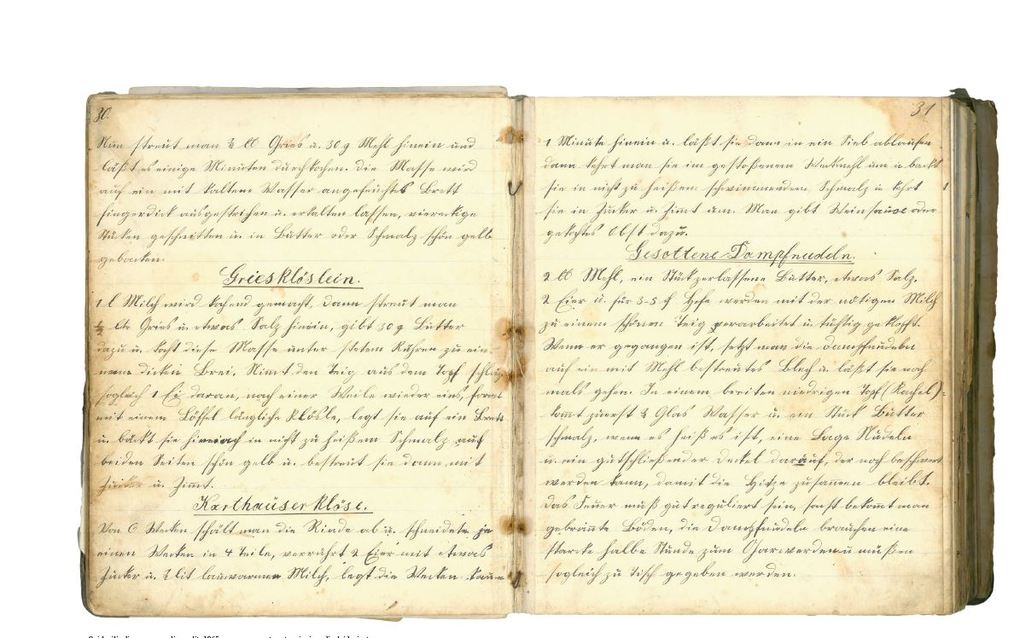 30.
Nun streut man ½ ℔ Gries u. 30 g Mehl hinein und
läßt es einige Minuten durchkochen. Die Masse wird
auf ein mit kaltem Wasser angefeuchtes Brett
fingerdick ausgestrichen u. erkalten lassen, viereckige
Stücken geschnitten u. in Butter oder Schmalz schön gelb
gebacken.
Griesklöslein.
1 l Milch wird kochend gemacht, dann streut man
Gries u. etwas Salz hinein, gibt 30 g Butter
dazu u. kocht diese Masse unter stetem Rühren zu ein
dicken Brei. Nimt den Teig aus dem Topf
sogleich 1 Ei daran, nach einer Weile wieder eins,
mit einem Löffel längliche Klösle, legt sie auf ein Brett
u. bäckt sie in nicht zu heißem Schmalz auf
beiden Seiten schön gelb u. bestreut sie dann mit
Zucker u. Zimmt.
Karthäuserklöse.
Von 6 Wecken schält man die Rinde ab u. schneidet je
einen Wecken in 4 Teile, verrührt 2 Eier mit etwas
Zucker u. lit lauwarmen Milch, legt die Wecken kaum
31
1 Minute hinein u. läßt sie dann in ein Sieb ablaufen
dann kehrt man sie im gestoßenem Weckmehl um u backt
sie in nicht zu heißem schwimmenden Schmalz u. kehrt
sie in Zucker u. Zimt um. Man gibt Weinsauce oder
gekochtes Obst dazu.
Gesottene Dampfnudeln.
2 ℔ Mehl, ein Stück zerlassene Butter, etwas Salz.
2 Eier u. für 3-5 ₰ Hefe werden mit der nötigen Milch
zu einem schönen Teig verarbeitet u. tüchtig geklopft.
Wenn er gegangen ist, setzt man die Dampfnudeln
auf ein mit Mehl bestreutes Blech u. läßt sie noch
mals gehen. In einem breiten niedrigen Topf (Kachel)
kommt zuerst Glas Wasser u. ein Stück Butter
schmalz, wenn es heiß ist, eine Lage Nudeln
u. ein gutschließender Deckel darauf, der noch beschwert
werden kann, damit die Hitze zusammen bleibt.
Das Feuer muß gut reguliert sein, sonst bekomt man
gebrännte Böden, die Dampfnudeln brauchen eine
starke halbe Stunde zum Garwerden u müssen
sogleich zu Tisch gegeben werden.